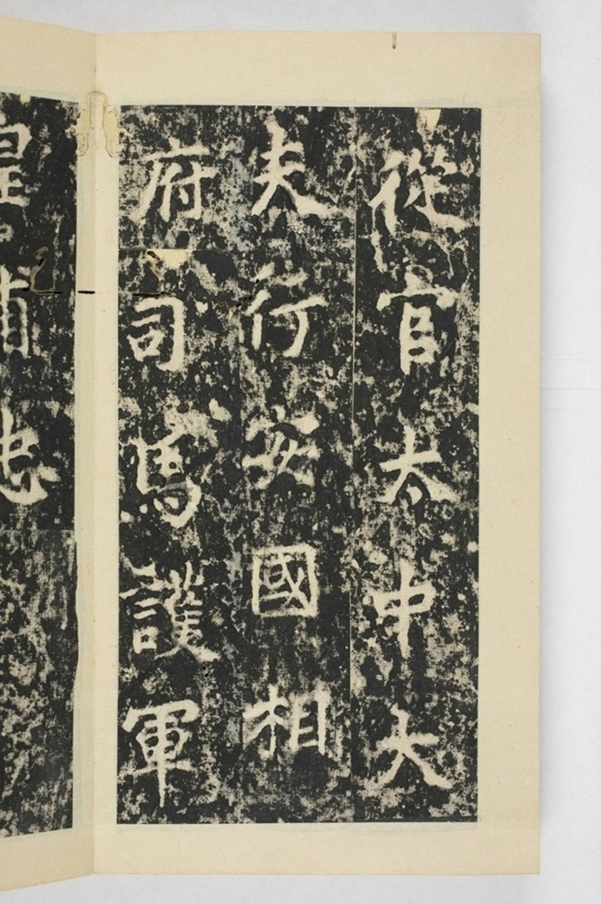 從官太中大
夫行安國相
府司馬護軍
皇甫忠